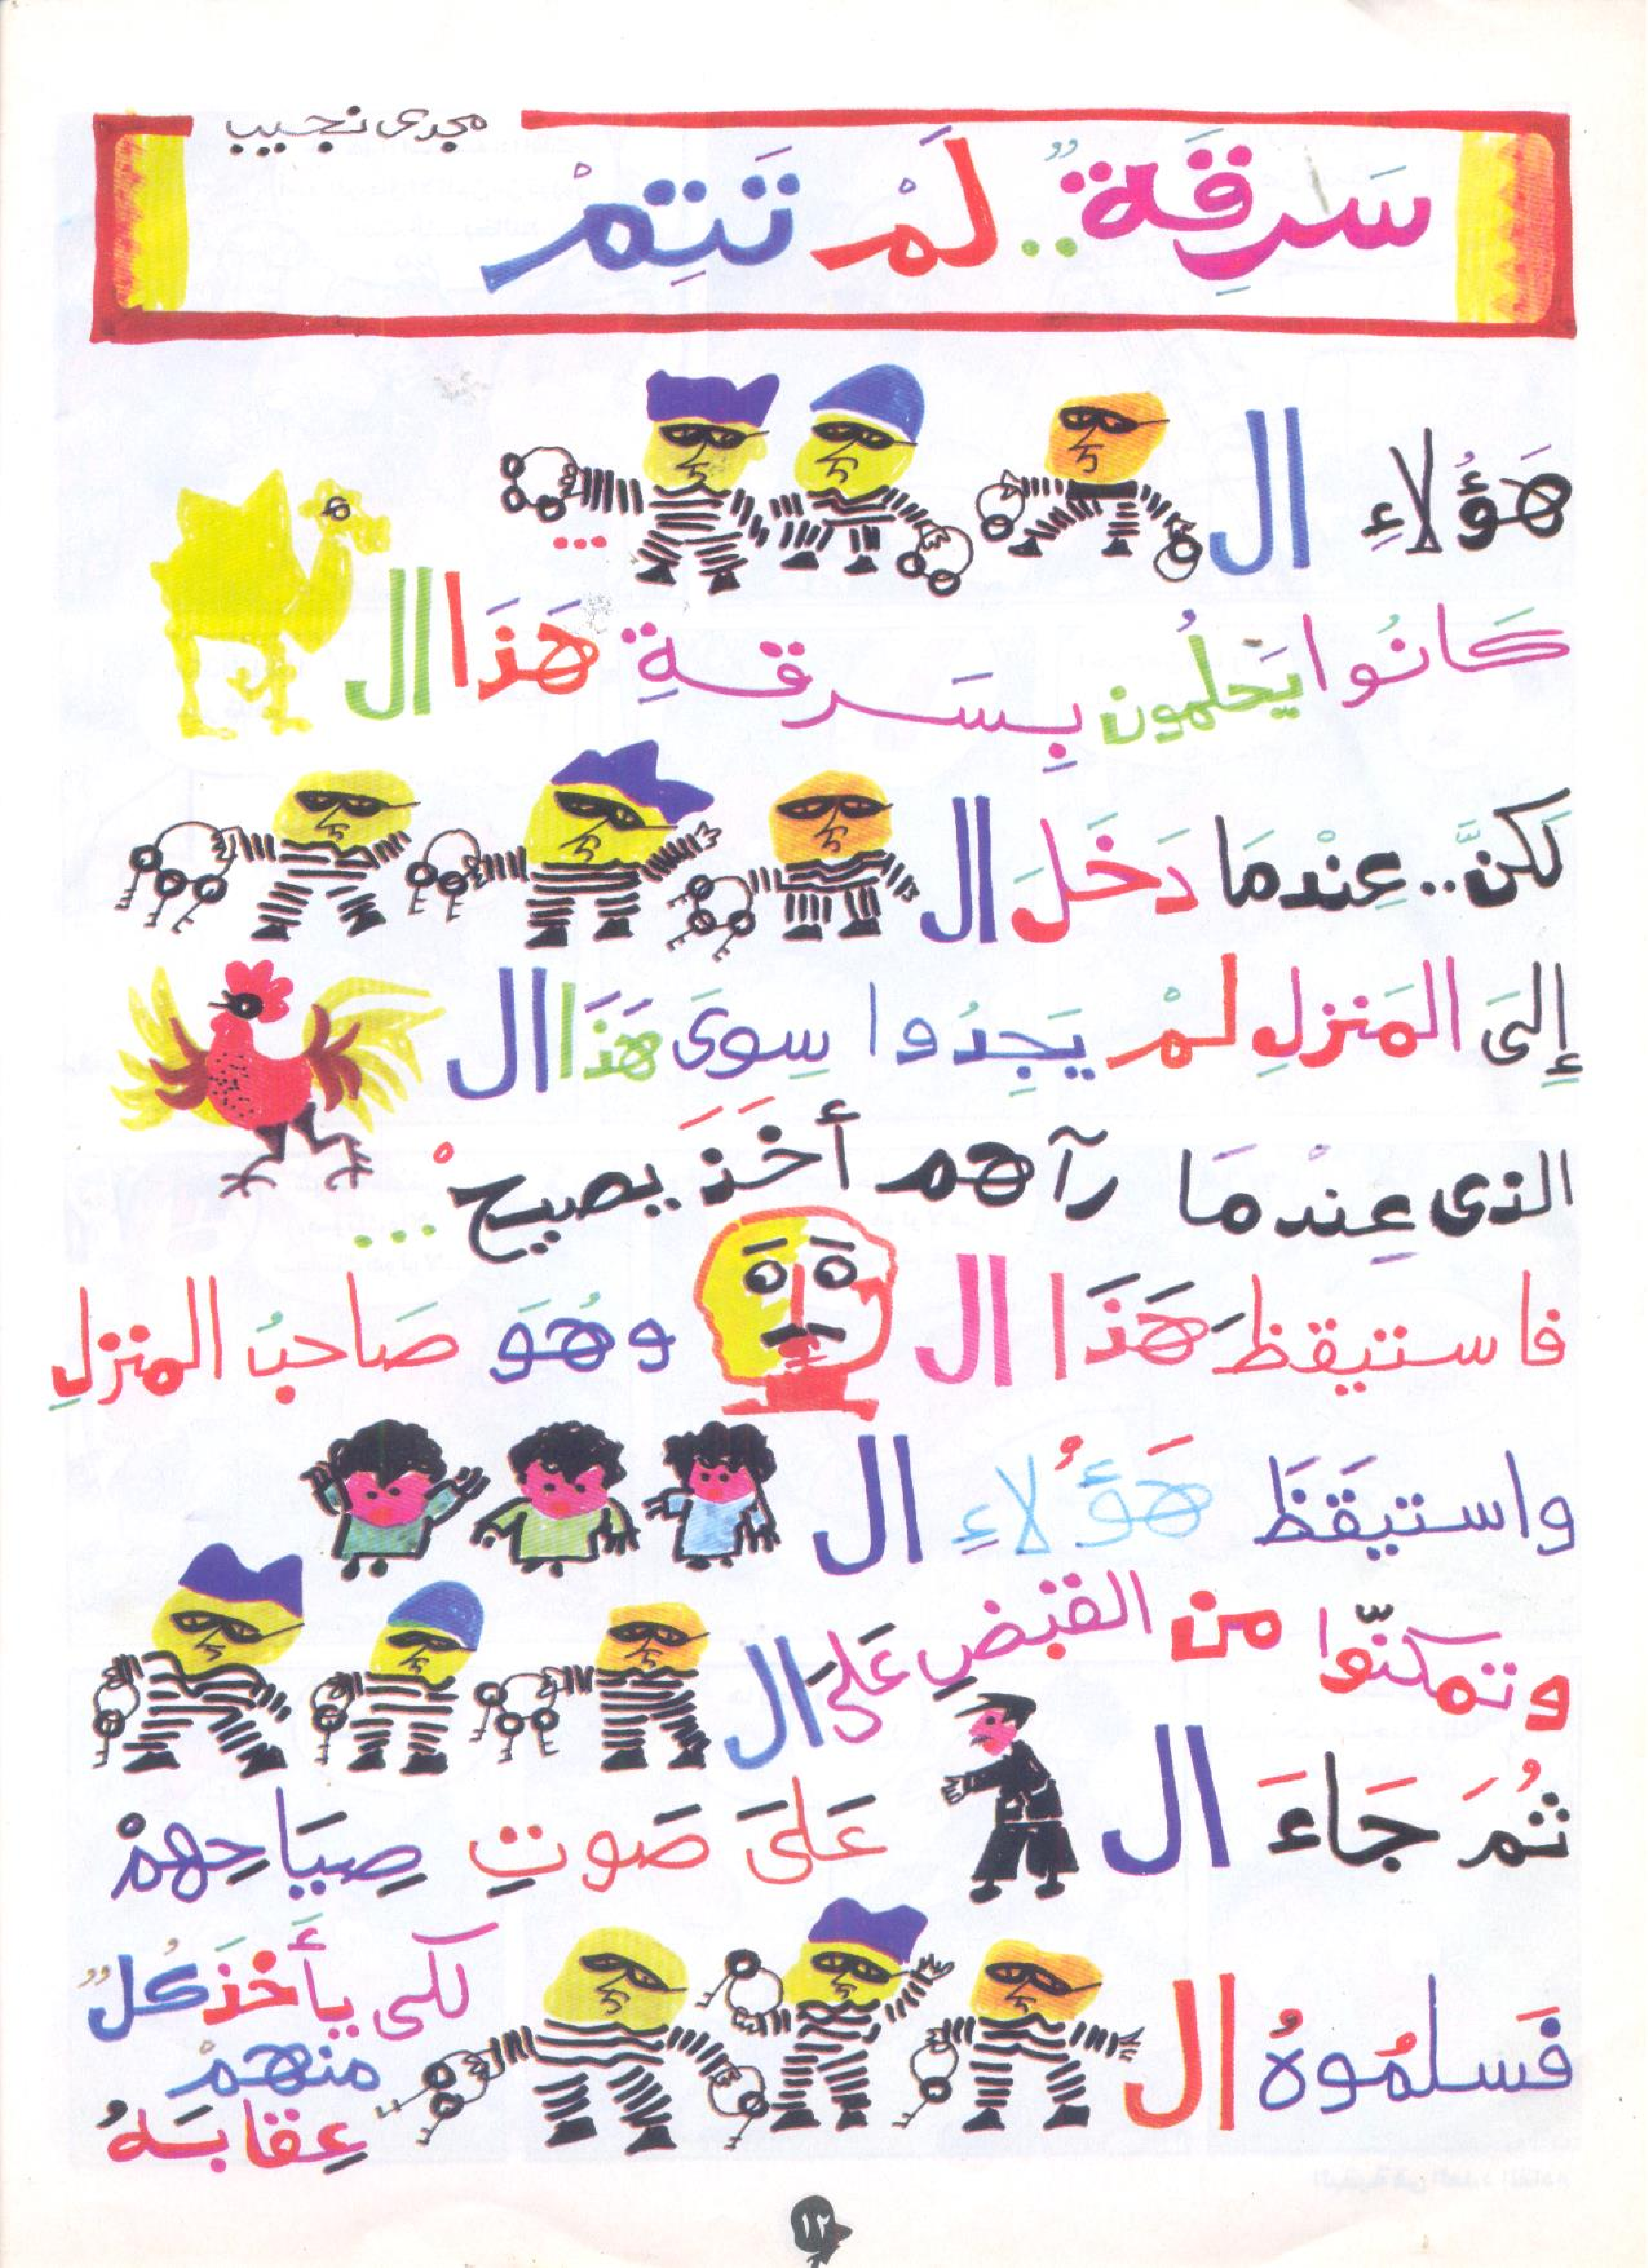 مجدى نجيب
سَرِقَةٌ.. لَمْ تَتِمْ
هَؤُلاءِ ال
...
كَانُوا يَحلُمون بِسَرقةِ هَذَا ال
لَكنَّ.. عِنْدمَا دَخَلَ ال
إِلىَ المَنزلِ لمْ يَجِدُوا سِوىَ هَذَا ال
الذى عِندمَا رآهم أَخَذَ يصيحْ...
فاستيقظَ هَذَا ال وهُوَ صَاحبُ المنزلِ
واستيقَظَ هَؤُلاءِ ال
وتمكنّوا من القبْضِ عَلىَ ال
ثُمَ جَاءَ ال عَلىَ صَوتِ صِيَاحِهمْ
فَسلمُوهُ ال لكى يأَخذَ كُلٌ
منهمْ
عِقابَهُ
١٢